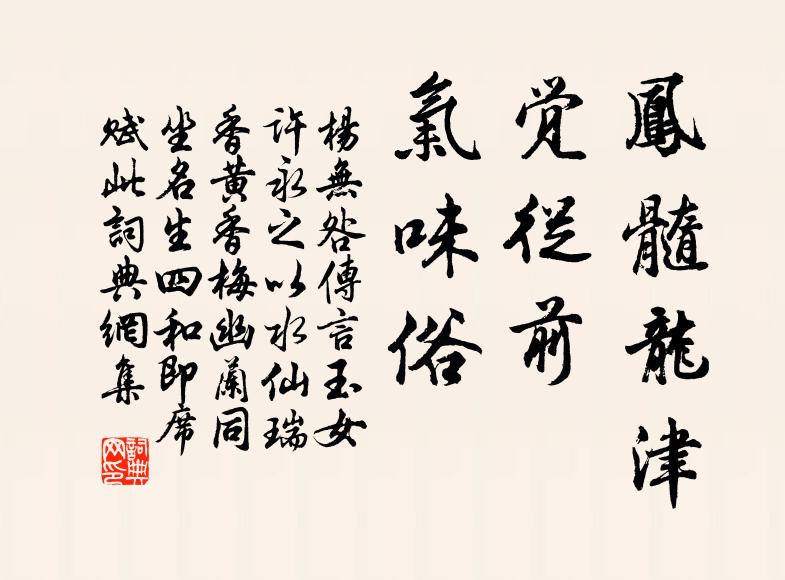 鳳髓龍津
覚従前
氣味俗
楊無咎傳言玉女
許永之以水仙瑞
香黄香梅幽蘭同
坐名生四和即席
賦此詞典網集
詞典
网印